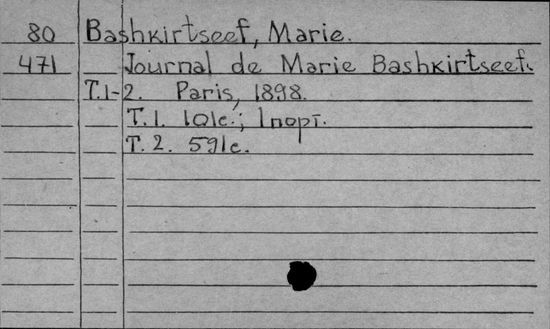 80 Bashkirtseef, Marie.
471 Journal de Marie Bashkirtseef.
T.1-2. Paris, 1898.
T.1. 101c.; 1порт.
T.2. 591c.